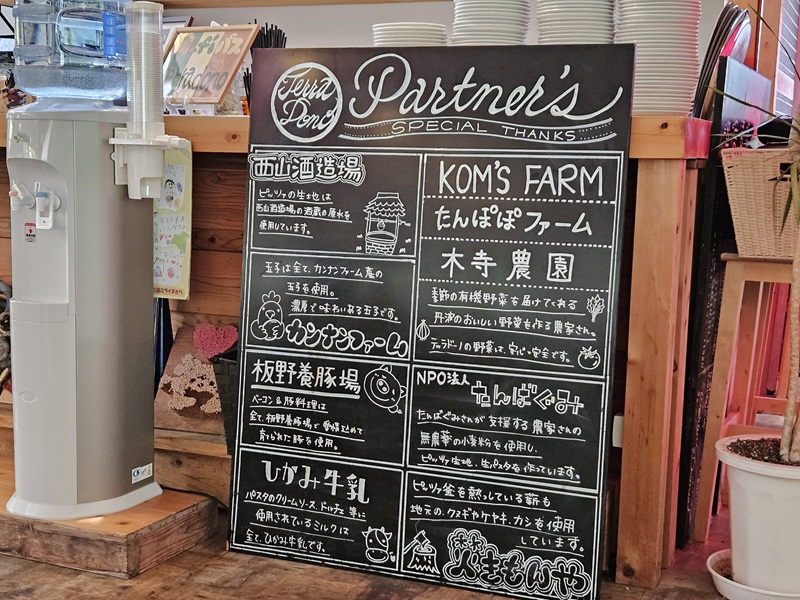 Terra
Dono
Partner's
SPECIAL THANKS
西山酒造場
ピッツァの生地は
西山酒造場の酒蔵の層水を
使用しています。
玉子は全て、カンナンファーム産の
玉子を使用。
濃厚で味わいある玉子です。
カンナンファーム
板野養豚場
ベーコン&豚料理は
全て、板野養豚場で愛情込めて
育てられた豚を使用。
ひかみ牛乳
パスタのクリームソース、ドルチェ等に
使用されているミルクは
全て、ひかみ牛乳です。
KOM'S FARM
たんぽぽファーム
木寺農園
季節の有機野菜を届けてくれる
丹波のおいしい野菜を作る農家さん。
テッラドーノの野菜は、安心安全です。
NPO法人
たんばぐみ
たんばぐみさんが支援する農家さんの
無農薬の小麦粉を使用し、
ピッツァ生地、生パスタを作っています。
ピッツァ釜を熱っしている薪も
地元の、クヌギやケヤキ、カシを使用
しています。
まきもんや